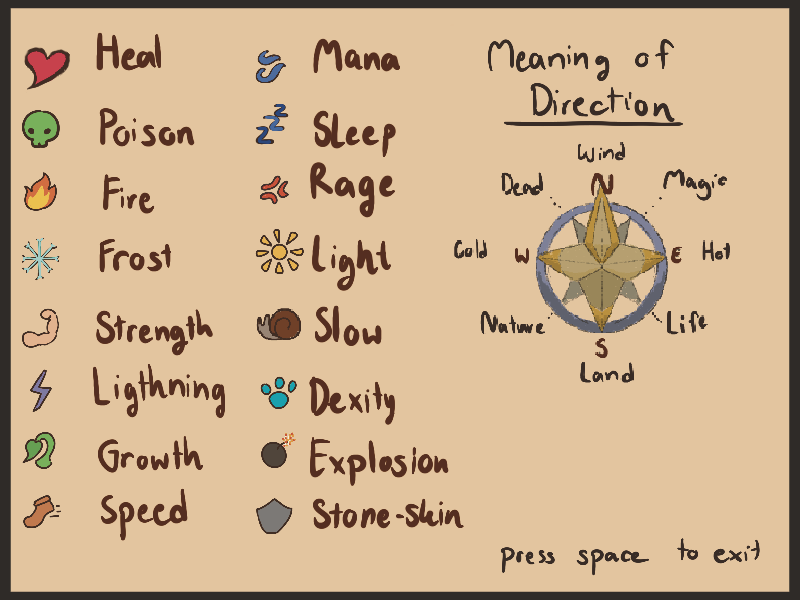 Heal
Poison
Fire
Frost
Strength
Ligthning
Growth
Speed
Mana
Sleep
Rage
Light
Slow
Dexity
Explosion
Stone-skin
Meaning of
Direction
Wind
Dead
N
Magic
Cold
W
E
Hot
Nature
Life
S
Land
press space to exit